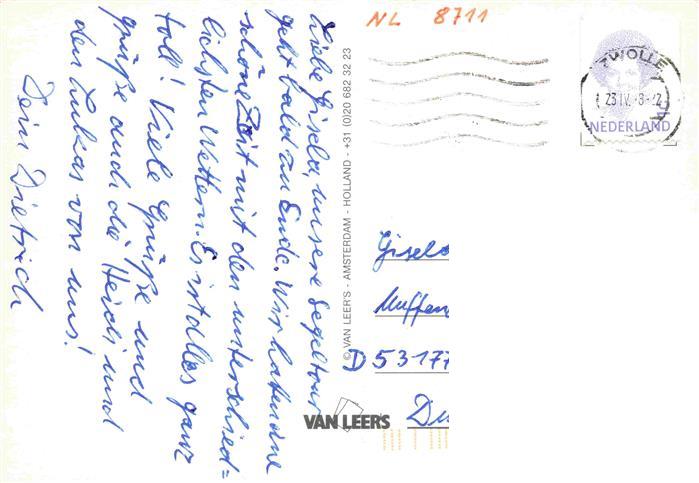 Liebe Gisela, unsere Segeltour
geht bald zu Ende. Wir hatten eine
schöne Zeit mit den unterschied=
lichsten Wettern. Es ist alles ganz
toll! Viele Grüße und
grüße auch die Heidi und
den Lukas von uns!
Dein Dietrich
© VAN LEER'S - AMSTERDAM - HOLLAND - +31 (0)20 682 32 23
NL 8711
ZWOLLE
23 IV
NEDERLAND
Gisela
Muffen
D 53177
VAN LEER'S